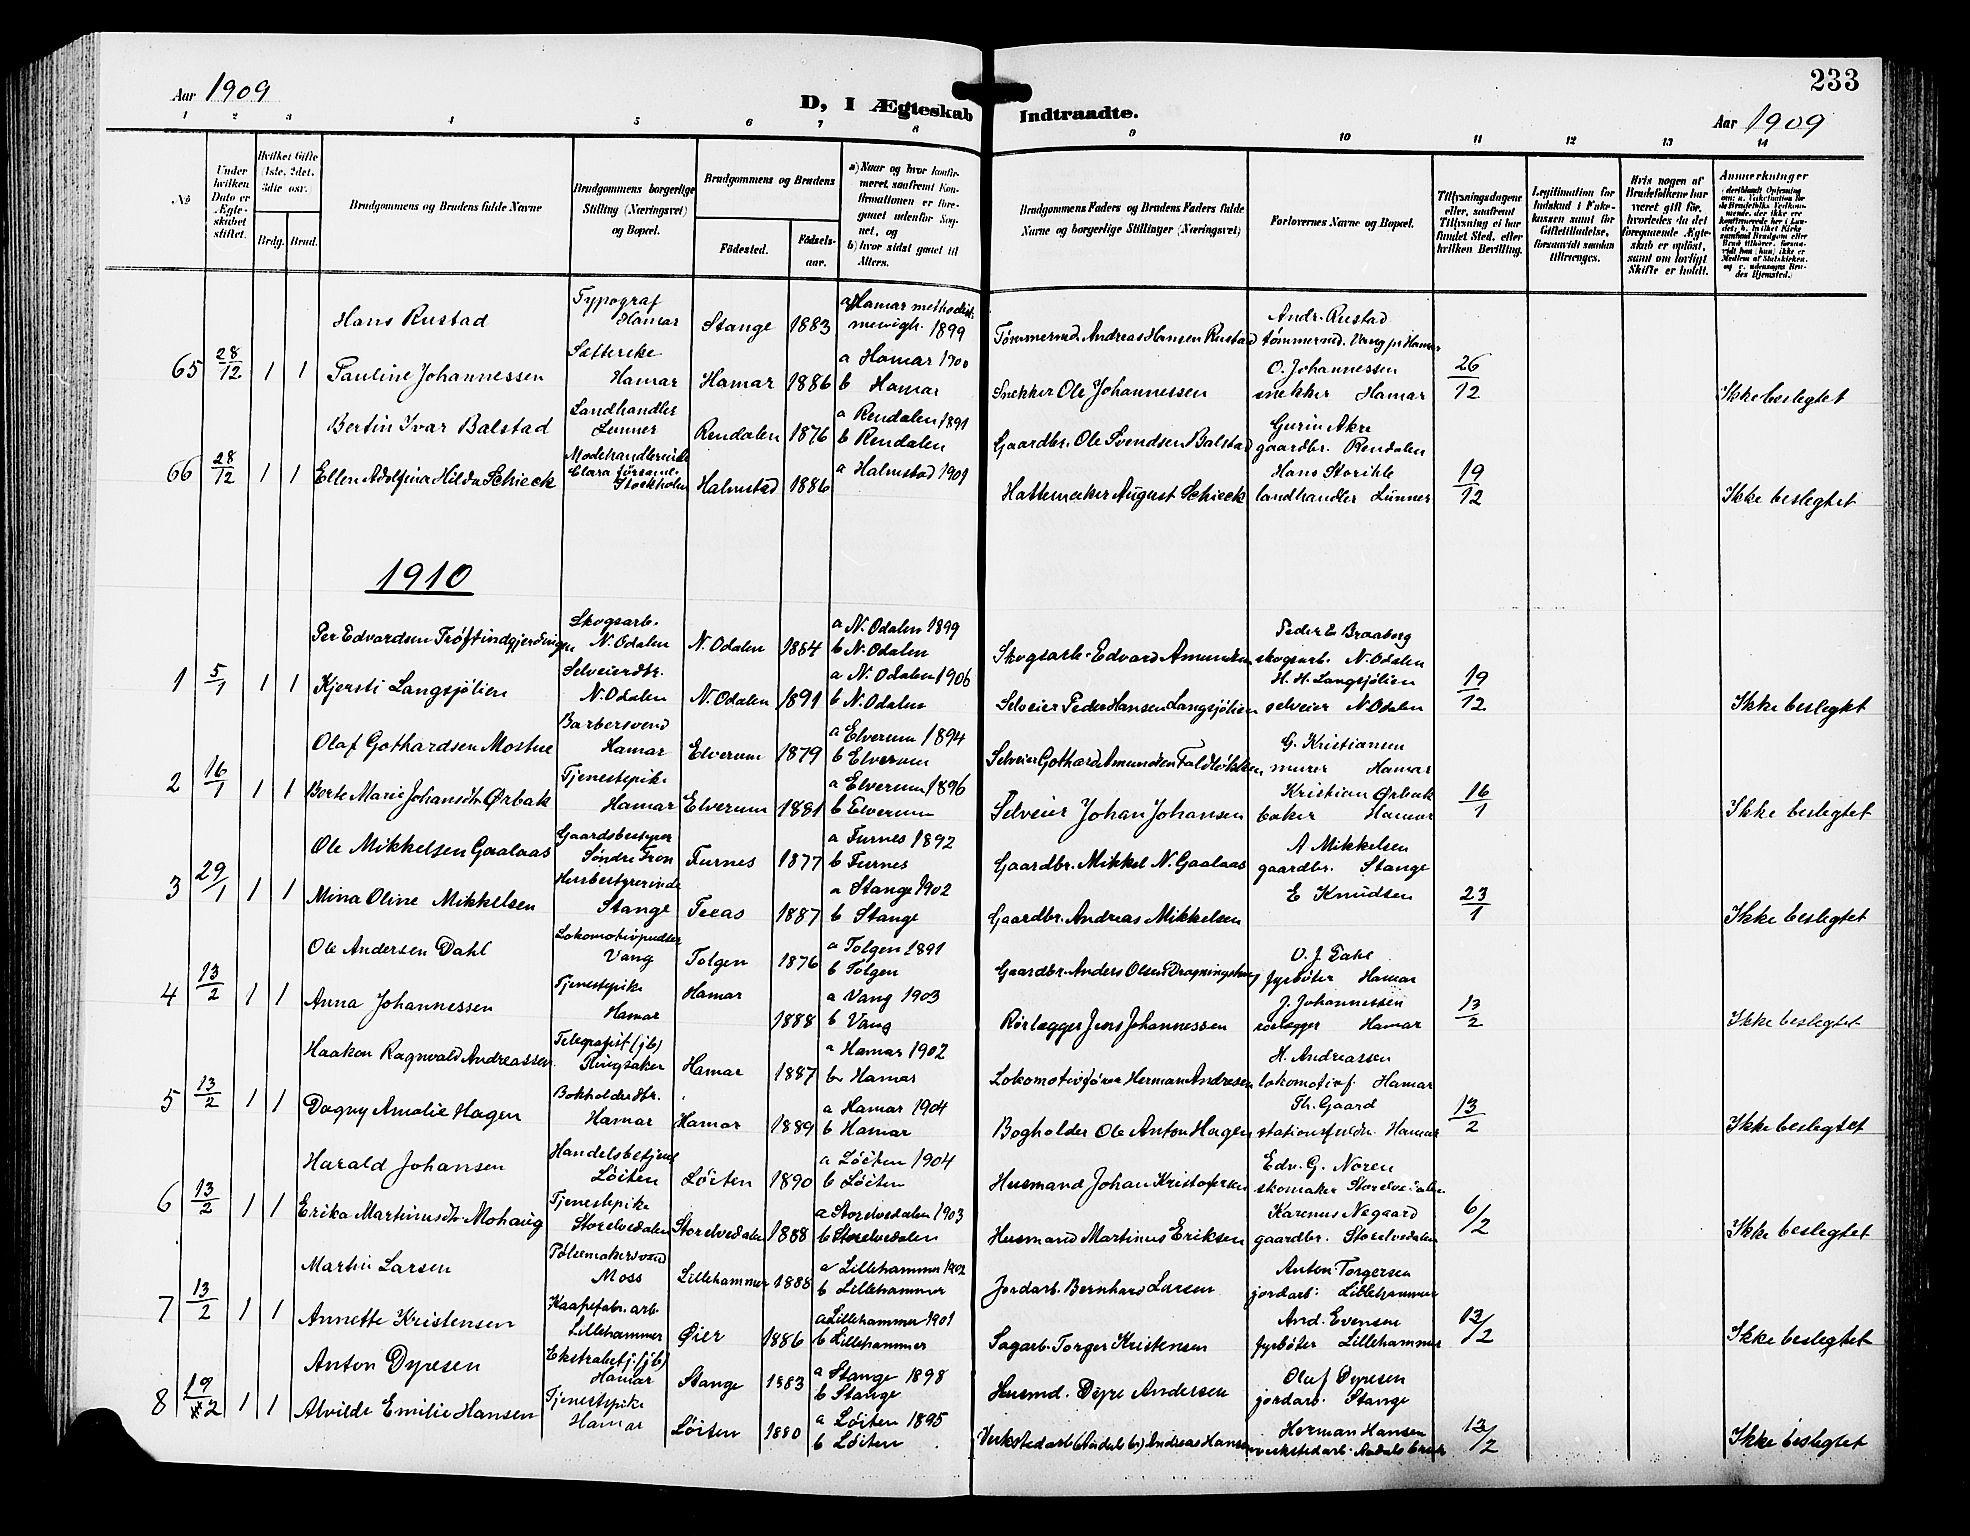 233
Aar 1909
D, I Ægteskab Indtraadte.
Aar 1909
1 2 3 4 5 6 7 8 9 10 11 12 13 14
No
Under hvilken Dato er Ægteskabet stiftet.
Hvilket Gifte (1ste, 2det, 3die osv.
Brdg. Brud.
Brudgommens og Brudens fulde Navne
Brudgommens borgerlige Stilling (Næringsvei) og Bopæl.
Brudgommens og Brudens
Födested.
Födselsaar.
a) Naar og hvor konfirmeret, saafremt Konfirmationen er foregaaet udenfor Sognet, og
b) hvor sidst gaaet til Alters.
Brudgommens Faders og Brudens Faders fulde Navne og borgerlige Stillinger (Næringsvei)
Forlovernes Navne og Bopæl.
Tillysningsdagene eller, saafremt Tillysning ei har fundet Sted, efter hvilken Bevilling.
Legitimation for Indskud i Enkekassen samt for Giftetilladelse, forsaavidt saadan tiltrænges.
Hvis nogen af Brudefolkene har været gift för, hvorledes da det foregaaende Ægteskab er oplöst, samt om lovligt Skifte er holdt.
Anmærkninger
Hans Rustad Typograf Hamar Stange 1883 a Hamar methodistmenigh. 1899 Tømmermd. Andreas Hansen Rustad Andr. Rustad tømmermd. Vang pr Hamar
65 28/12 1 1 Pauline Johannessen Sætterske Hamar Hamar 1886 a Hamar 1900 b Hamar Snekker Ole Johannessen O. Johannessen snekker Hamar 26/12 Ikke beslegtet
Bertin Ivar Balstad Landhandler Lunner Rendalen 1876 a Rendalen 1891 b Rendalen Gaardbr. Ole Svendsen Balstad Gurin Akre gaardbr. Rendalen
66 28/12 1 1 Ellen Adolfina Hilda Schieck Modehandlerinde Clara forsaml. Stockholm Halmstad 1886 a Halmstad 1901 Hattemaker August Schieck Hans Storihle landhandler Lunner 19/12 Ikke beslegtet
1910
Per Edvardsen Trøftindgjerdingen Skogsarb. N. Odalen N. Odalen 1884 a N. Odalen 1899 b N. Odalen Skogsarb. Edvard Amundsen Peder E Braaberg skogsarb. N. Odalen
1 5/1 1 1 Kjersti Langsjølien Selveierdtr. N. Odalen N. Odalen 1891 a N. Odalen 1906 b N. Odalen Selveier Peder Hansen Langsjølien H. H. Langsjølien selveier N Odalen 19/12 Ikke beslegtet
Olaf Gothardsen Mostue Barbersvend Hamar Elverum 1879 a Elverum 1894 b Elverum Selveier Gothard Amundsen G. Kristiansen murer Hamar
2 16/1 1 1 Borte Marie Johansdtr Ørbak Tjenestepike Hamar Elverum 1881 a Elverum 1896 b Elverum Selveier Johan Johansen Kristian Ørbak baker Hamar 16/1 Ikke beslegtet
Ole Mikkelsen Gaalaas Gaardsbestyrer Søndre Fron Furnes 1877 a Furnes 1892 b Furnes Gaardbr. Mikkel N. Gaalaas A Mikkelsen gaardbr. Stange
3 29/1 1 1 Mina Oline Mikkelsen Husbestyrerinde Stange Texas 1887 a Stange 1902 b Stange Gaardbr. Andreas Mikkelsen E Knudsen 23/1 Ikke beslegtet
Ole Andersen Dahl Lokomotivpudser Vang Tolgen 1876 a Tolgen 1891 b Tolgen Gaardbr. Anders Olsen O. J. Dahl fyrbøter Hamar
4 13/2 1 1 Anna Johannessen Tjenestepike Hamar Hamar 1888 a Vang 1903 b Vang Rørlægger Jens Johannessen J. Johannessen rørlægger Hamar 13/2 Ikke beslegtet
Haakon Ragnvald Andreassen Telegrafist (jb) Ringsaker Hamar 1887 a Hamar 1902 b Hamar Lokomotivfører Herman Andresen H. Andreassen lokomotivf. Hamar
5 13/2 1 1 Dagny Amalie Hagen Bokholderdtr. Hamar Hamar 1889 a Hamar 1904 b Hamar Bogholder Ole Anton Hagen Th. Gaard stationsfuldm. Hamar 13/2 Ikke beslegtet
Harald Johansen Handelsbetjent Løiten Løiten 1890 a Løiten 1904 b Løiten Husmand Johan Kristofersen Edv. G. Noren skomaker Storelvedalen
6 13/2 1 1 Erika Martinusdtr Mohaug Tjenestepike Storelvedalen Storelvedalen 1888 a Storelvedalen 1903 b Storelvedalen Husmand Martinus Eriksen Karenus Nagaard gaardbr. Storelvedalen 6/2 Ikke beslegtet
Martin Larsen Pølsemakersvend Moss Lillehammer 1888 a Lillehammer 1902 b Lillehammer Jordarb. Bernhard Larsen Anton Torgersen jordarb. Lillehammer
7 13/2 1 1 Annette Kristensen Kaapefabr. arb. Lillehammer Øier 1886 a Lillehammer 1901 b Lillehammer Sagarb. Torger Kristensen And. Evensen fyrbøter Lillehammer 13/2 Ikke beslegtet
Anton Dyresen Ekstrabetj. (jb) Hamar Stange 1883 a Stange 1898 b Stange Husmd. Dyre Andersen Olaf Dyresen jordarb. Stange
8 19/2 1 1 Alvilde Emilie Hansen Tjenestepike Hamar Løiten 1880 a Løiten 1895 b Løiten Verkstedarb. (Aadals br) Andreas Hansen Herman Hansen verkstedarb. Aadals bruk 13/2 Ikke beslegtet